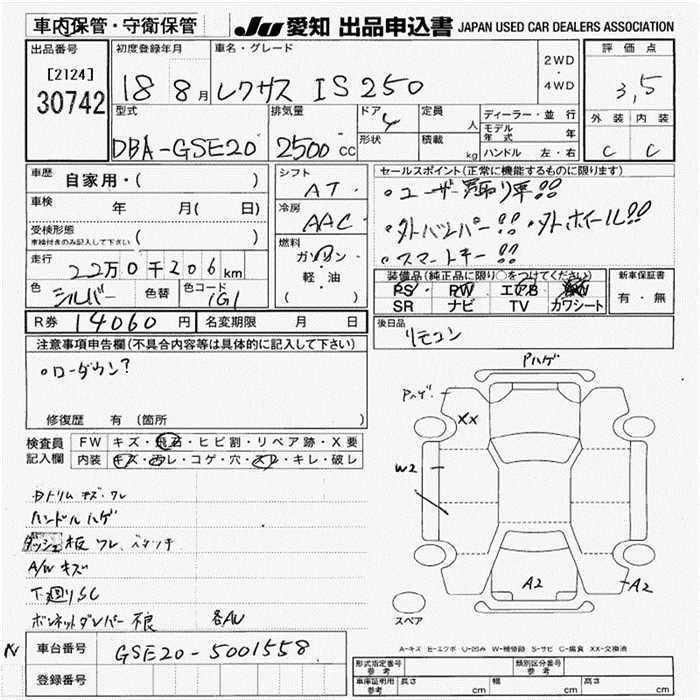 車内保管・守衛保管
JU 愛知 出品申込書 JAPAN USED CAR DEALERS ASSOCIATION
出品番号
[2124]
30742
初度登録年月
18 8月
車名・グレード
レクサス IS250
2WD
・
4WD
評価点
3,5
外装 内装
C C
型式
DBA-GSE20
排気量
2500 cc
ドア 4
形状
定員 人
積載 kg
ディーラー・並行
モデル年式 年
ハンドル 左・右
車歴 自家用・( )
車検 年 月( 日)
受検形態
車検付きのみ記入して下さい ( )
走行
22万0千206km
色 シルバー 色替 色コード 1G1
シフト
AT
冷房
AAC
燃料
ガソリン
軽・油
( )
セールスポイント(正常に機能するものに限ります)
・ユーザー買取り車!!
・外バンパー!! 外ホイール!!
・スマートキー!!
装備品(純正品に限り○をつけてください)
PS PW エアB AW
SR ナビ TV カワシート
新車保証書
有・無
R券 14060円 名変期限 月 日
後日品
リモコン
注意事項申告欄(不具合内容等は具体的に記入して下さい)
・ローダウン?
修復歴 有 (箇所 )
検査員記入欄
FW キズ・飛石・ヒビ割・リペア跡・X要
内装 キズ・西レ・コゲ・穴・スレ・キレ・破レ
内トリム キズ・ワレ
ハンドル ハゲ
ダッシュ板 ワレ、ベタツキ
A/W キズ
下廻りSC
ボンネットダンパー不良 各AU
Pハゲ
Pハゲ
XX
W2
A2
A2
スペア
A-キズ E-エクボ U-凹み W-補修跡 S-サビ C-腐食 XX-交換済
車台番号 GSE20-5001558
登録番号
形式指定番号
参考
類別区分番号
参考
車庫証明用
参考
長さ cm 幅 cm 高さ cm